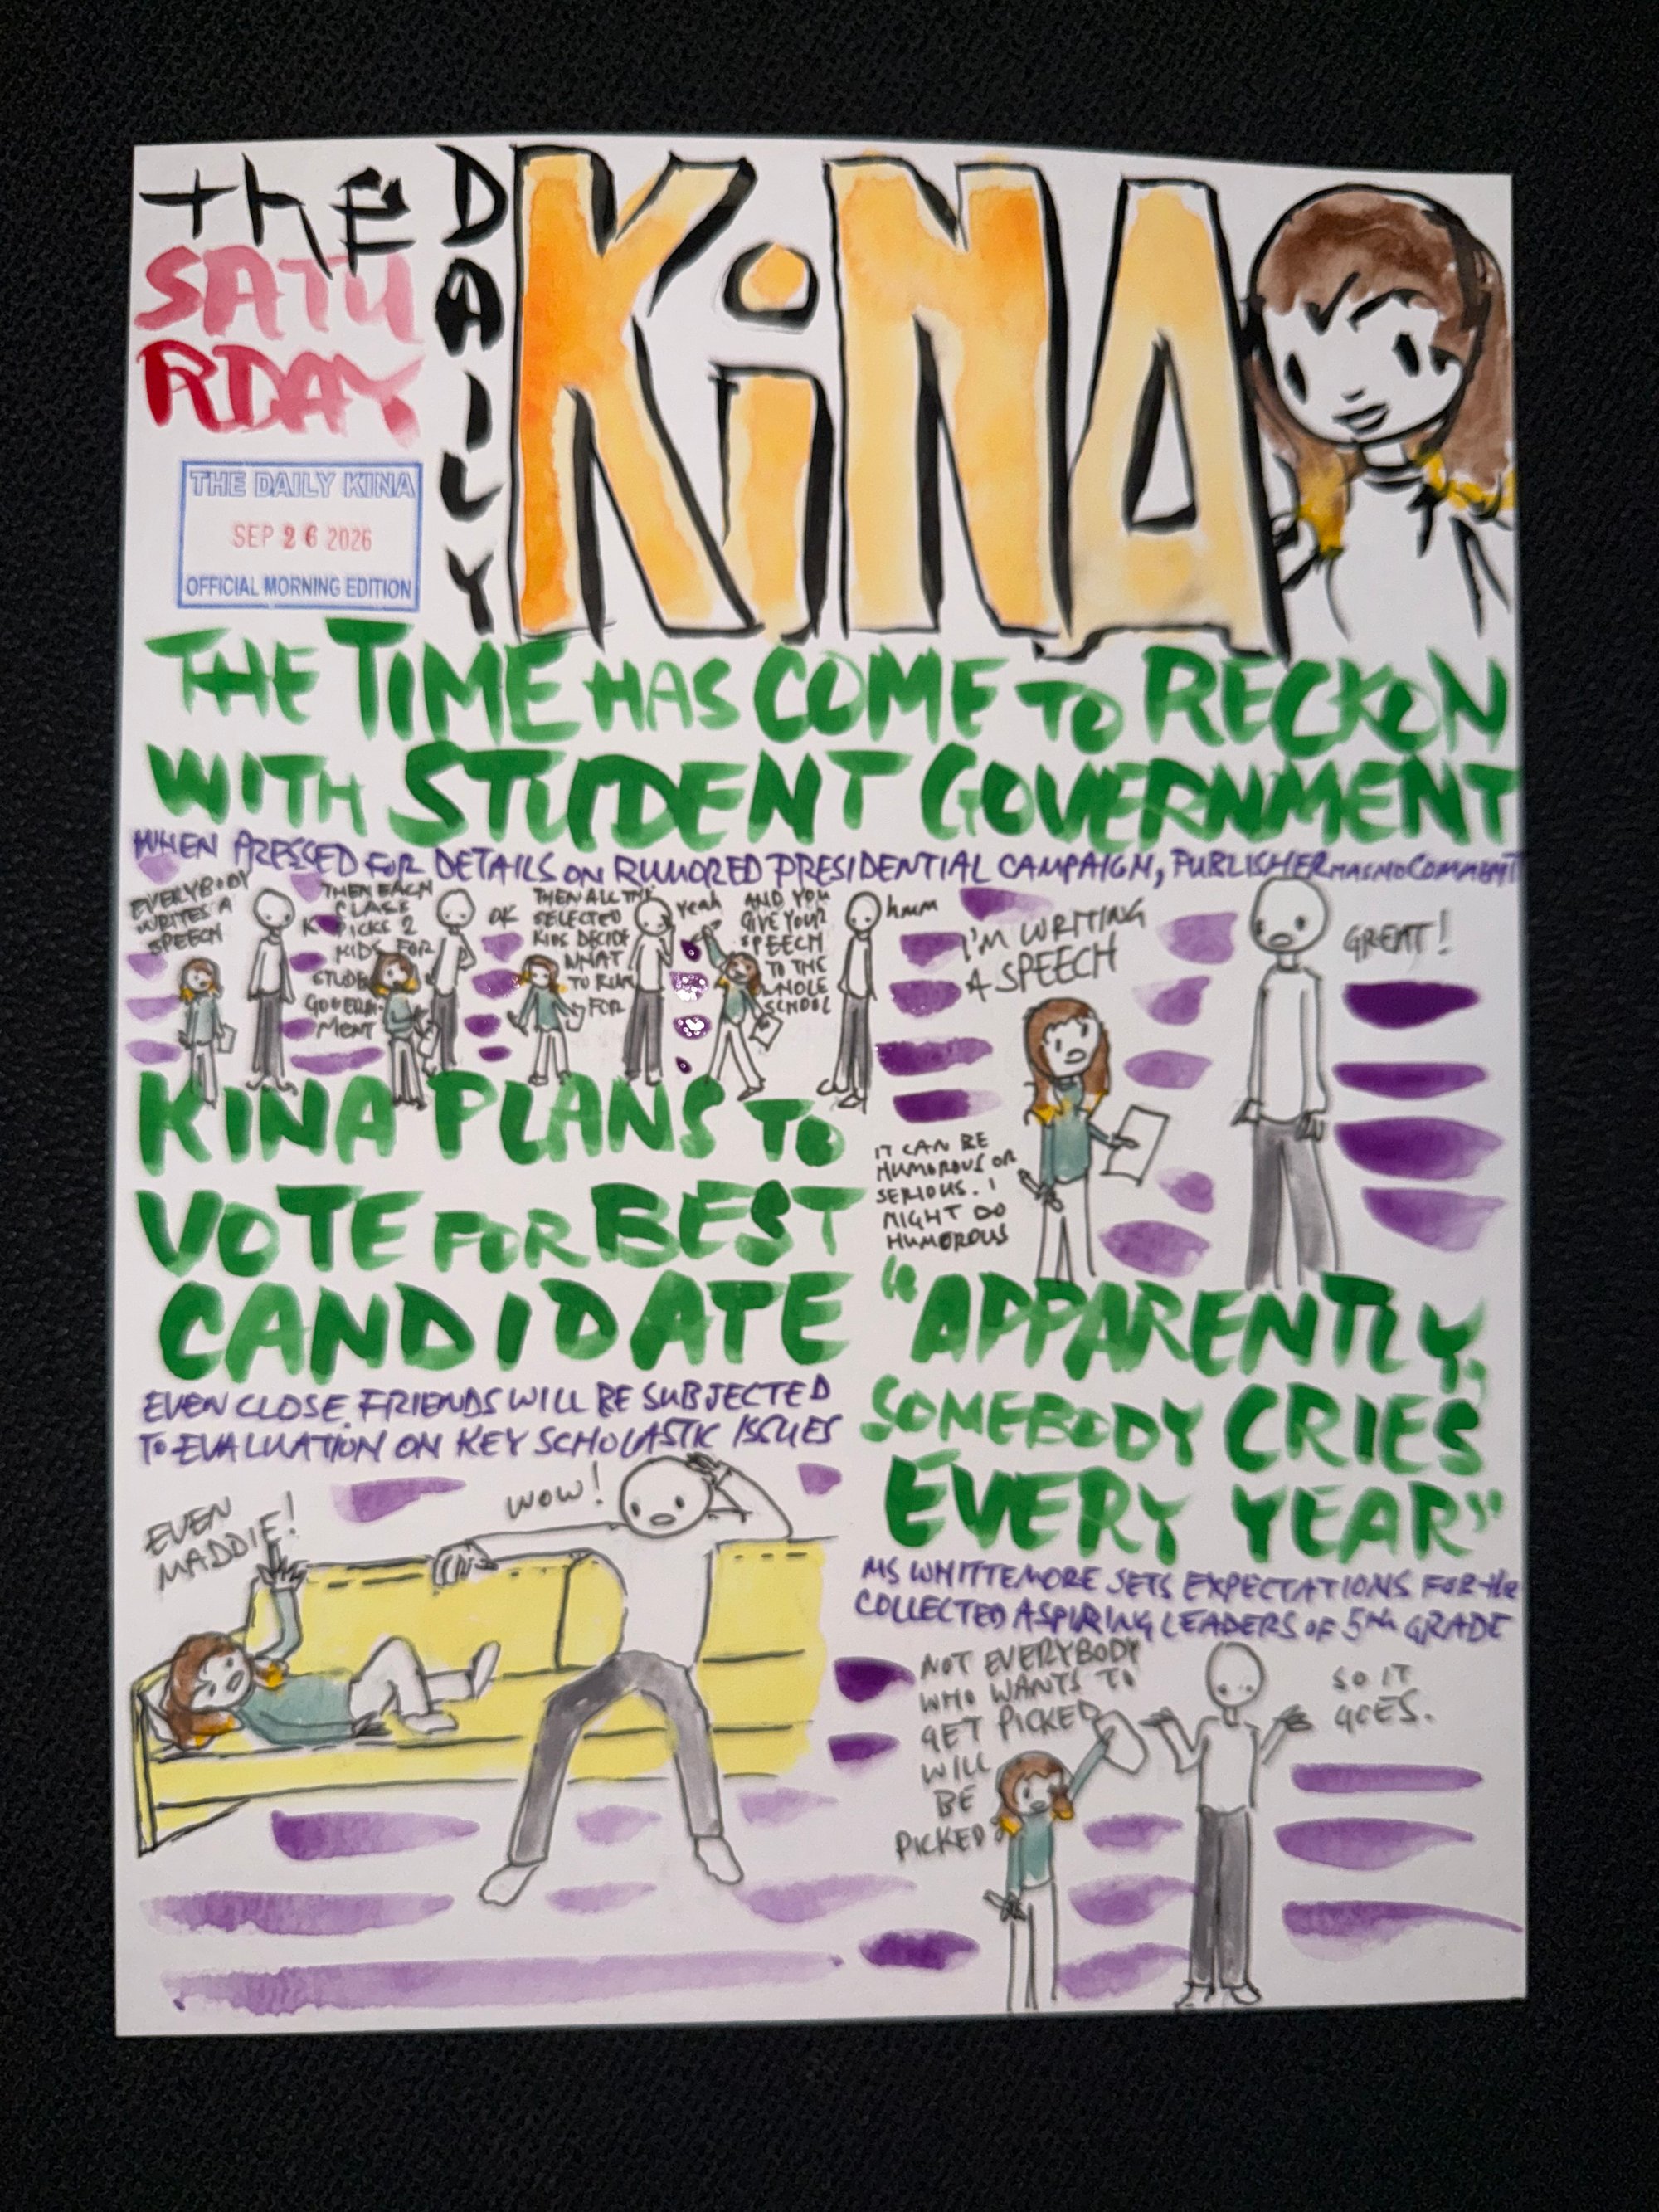 THE
SATU
RDAY
DAILY
KiNA
THE DAILY KINA
SEP 26 2026
OFFICIAL MORNING EDITION
THE TIME HAS COME TO RECKON
WITH STUDENT GOVERNMENT
WHEN PRESSED FOR DETAILS ON RUMORED PRESIDENTIAL CAMPAIGN, PUBLISHER HAS NO COMMENT
EVERYBODY
WRITES A
SPEECH
K
THEN EACH
CLASS
PICKS 2
KIDS FOR
STUDENT
GOVERN-
MENT
OK
THEN ALL THE
SELECTED
KIDS DECIDE
WHAT
TO RUN
FOR
yeah
AND YOU
GIVE YOUR
SPEECH
TO THE
WHOLE
SCHOOL
hmm
I'M WRITING
A SPEECH
GREAT!
IT CAN BE
HUMOROUS OR
SERIOUS. I
MIGHT DO
HUMOROUS
KINA PLANS TO
VOTE FOR BEST
CANDIDATE
EVEN CLOSE FRIENDS WILL BE SUBJECTED
TO EVALUATION ON KEY SCHOLASTIC ISSUES
EVEN
MADDIE!
WOW!
"APPARENTLY,
SOMEBODY CRIES
EVERY YEAR"
MS WHITTEMORE SETS EXPECTATIONS FOR the
COLLECTED ASPIRING LEADERS OF 5th GRADE
NOT EVERYBODY
WHO WANTS TO
GET PICKED
WILL
BE
PICKED
SO IT
GOES.